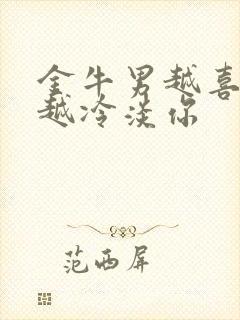 金牛男越喜
越冷淡你
范西屏